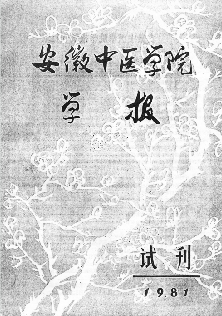 安徽中医学院
学报
试刊
1981